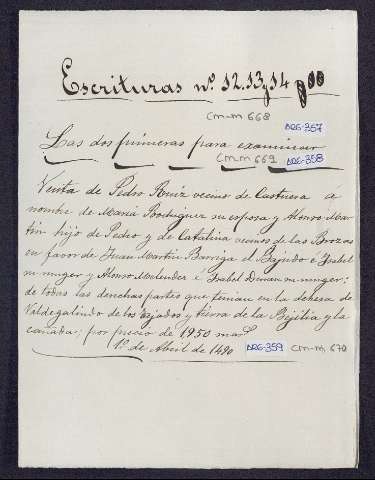 Escrituras nº. 12. 13 y 14
cm-m 668
ARG-357
Las dos primeras para examinar
cm-m 669 ARG-358
Venta de Pedro Ruiz vecino de Castuera á
nombre de Maria Rodriguez su esposa y Alonso Mar-
tin hijo de Pedro y de Catalina vecinos de las Brozas
en favor de Juan Martin Barriga el Bajudo é Isabel
su muger y Alonso Melendez é Isabel Duran su muger:
de todas las derechas partes que tenian en la dehesa de
Valdegalindo de los ajados y tierra de la Bejilia y la
cañada; por precio de 1950 mars.
1º. de Abril de 1490
ARG-359 cm-m, 670